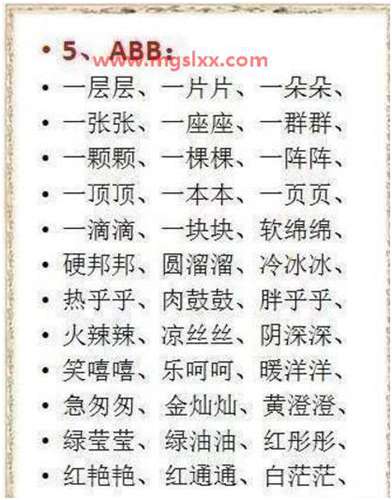 • 5、ABB：
www.mgslxx.com
• 一层层、一片片、一朵朵、
• 一张张、一座座、一群群、
• 一颗颗、一棵棵、一阵阵、
• 一顶顶、一本本、一页页、
• 一滴滴、一块块、软绵绵、
• 硬邦邦、圆溜溜、冷冰冰、
• 热乎乎、肉鼓鼓、胖乎乎、
• 火辣辣、凉丝丝、阴深深、
• 笑嘻嘻、乐呵呵、暖洋洋、
• 急匆匆、金灿灿、黄澄澄、
• 绿莹莹、绿油油、红彤彤、
• 红艳艳、红通通、白茫茫、